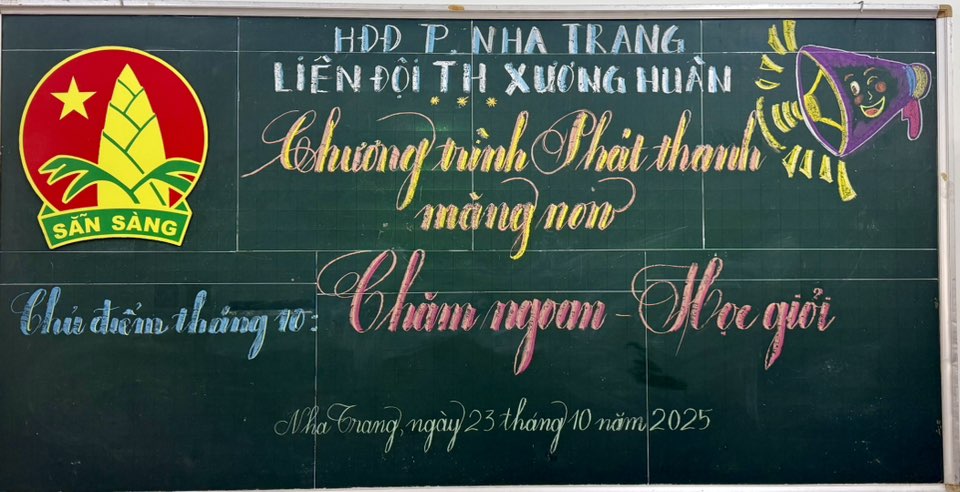 HĐĐ P. NHA TRANG
LIÊN ĐỘI TH XƯƠNG HUÂN
***
Chương trình Phát thanh
măng non
SẴN SÀNG
Chủ điểm tháng 10:
Chăm ngoan - Học giỏi
Nha Trang, ngày 23 tháng 10 năm 2025